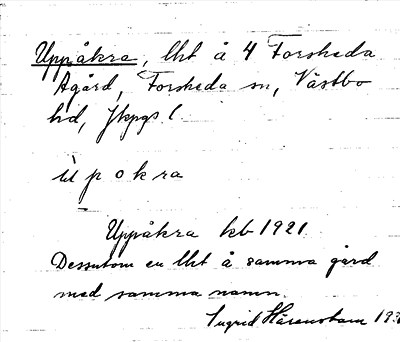 Uppåkra, lht å 4 Forsheda
Agård, Forsheda sn, Västbo
hd, Jkpgs l.
ùpokra
Uppåkra kb 1921
Dessutom en lht å samma gård
med samma namn.
Ingrid